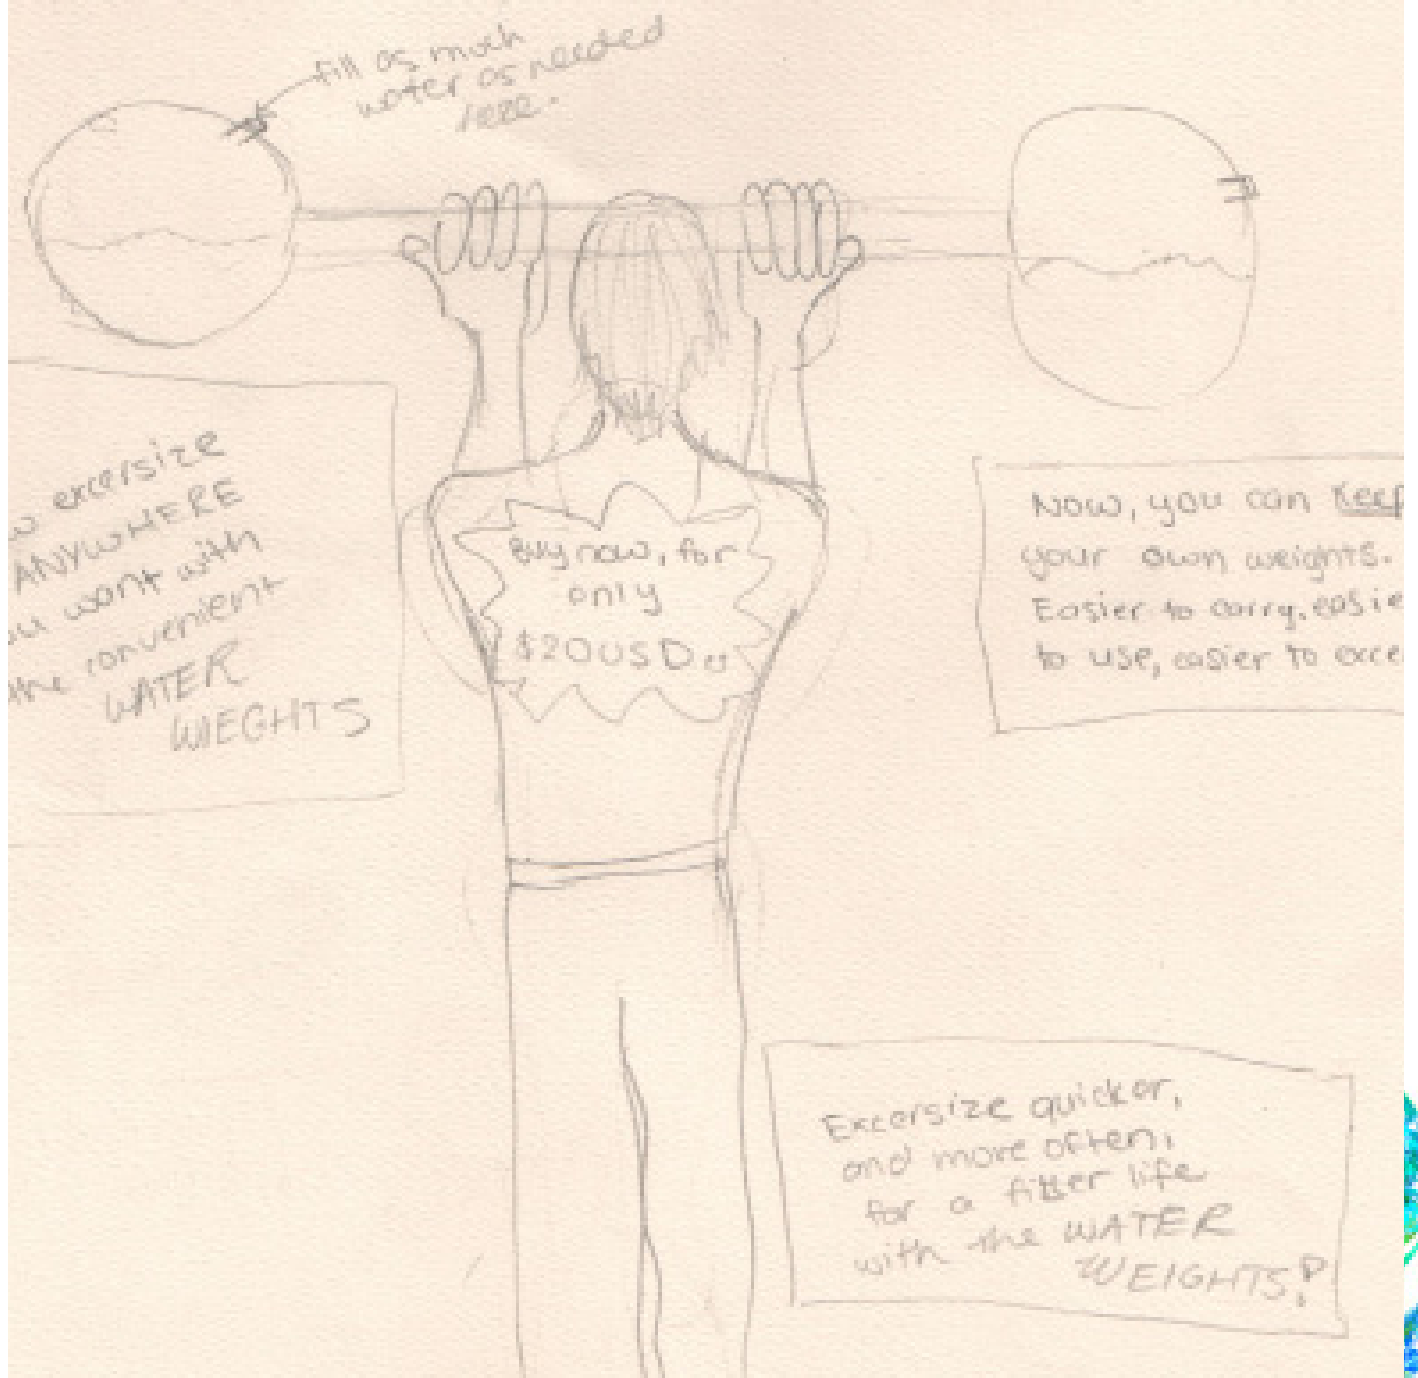 fill as much
water as needed
here.
excersize
ANYWHERE
want with
the convenient
WATER
WIEGHTS
Buy now, for
only
$20USD
Now, you can Keep
your own weights.
Easier to carry, easie
to use, easier to exce
Excersize quicker,
and more often,
for a fitter life
with the WATER
WEIGHTS!